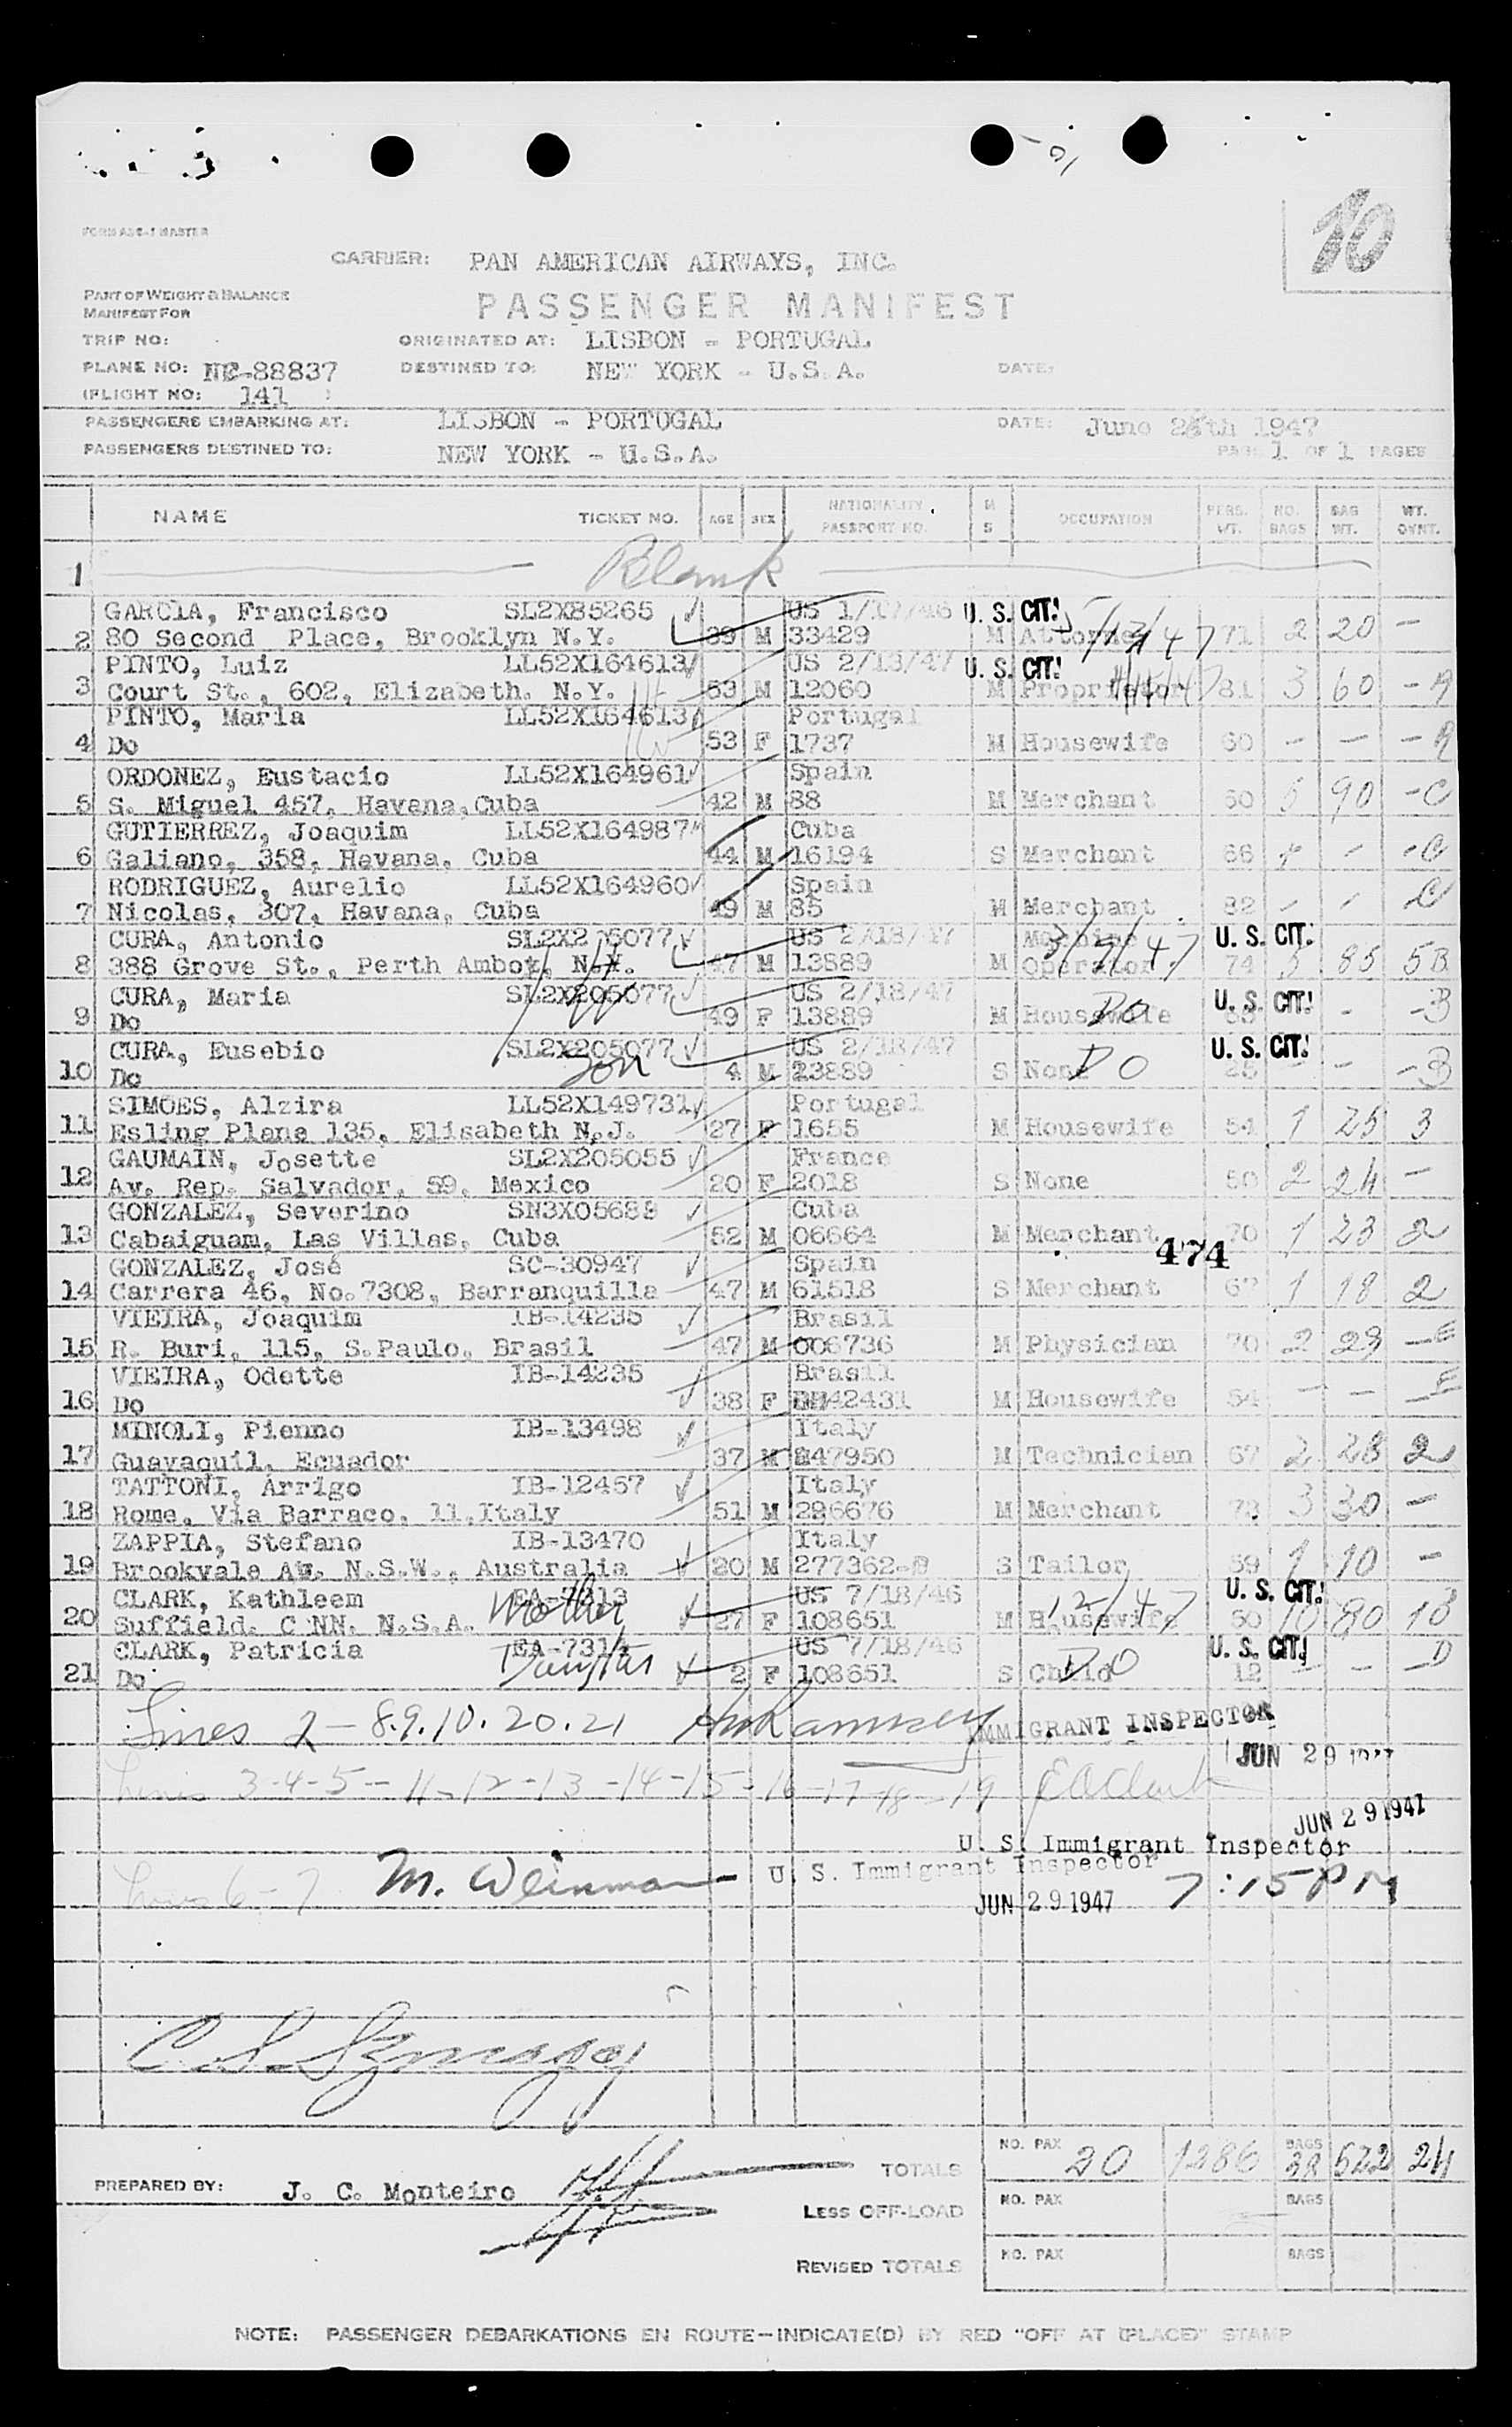 10
FORM ABC-1 MASTER
CARRIER: PAN AMERICAN AIRWAYS, INC.
PART OF WEIGHT & BALANCE
MANIFEST FOR
PASSENGER MANIFEST
TRIP NO: ORIGINATED AT: LISBON - PORTUGAL
PLANE NO: NC-88837 DESTINED TO: NEW YORK - U.S.A. DATE:
(FLIGHT NO: 141 )
PASSENGERS EMBARKING AT: LISBON - PORTUGAL DATE: June 28th 1947
PASSENGERS DESTINED TO: NEW YORK - U.S.A. PAGE 1 OF 1 PAGES
NAME TICKET NO. AGE SEX NATIONALITY PASSPORT NO. M S OCCUPATION PERS. WT. NO. BAGS BAG WT. WT. OVWT.
1 Blank
GARCIA, Francisco SL2X85265 US 1/17/46 U. S. CIT.
2 80 Second Place, Brooklyn N.Y. 39 M 33429 M Attorney 71 2 20 -
PINTO, Luiz LL52X164613 US 2/13/47 U. S. CIT.
3 Court St., 602, Elizabeth. N.Y. 53 M 12060 M Proprietor 81 3 60 - A
PINTO, Maria LL52X164613 Portugal
4 Do 53 F 1737 M Housewife 60 - - - A
ORDONEZ, Eustacio LL52X164961 Spain
5 S. Miguel 457, Havana, Cuba 42 M 88 M Merchant 60 5 90 - C
GUTIERREZ, Joaquim LL52X164987 Cuba
6 Galiano, 358, Havana, Cuba 44 M 16194 S Merchant 66 - - - C
RODRIGUEZ, Aurelio LL52X164960 Spain
7 Nicolas, 307, Havana, Cuba 49 M 85 M Merchant 82 - - C
CURA, Antonio SL2X205077 US 2/18/47 Machine U. S. CIT.
8 388 Grove St., Perth Amboy, N.Y. 47 M 13889 M Operator 74 5 85 5B
CURA, Maria SL2X205077 US 2/18/47 U. S. CIT.
9 Do 49 F 13889 M Housewife Do - - B
CURA, Eusebio SL2X205077 US 2/18/47 U. S. CIT.
10 Do Son 4 M 13889 S None DO 25 - - - B
SIMOES, Alzira LL52X149731 Portugal
11 Esling Plane 135, Elisabeth N.J. 27 F 1655 M Housewife 54 1 25 3
GAUMAIN, Josette SL2X205055 France
12 Av. Rep. Salvador, 59, Mexico 20 F 2018 S None 50 2 24 -
GONZALEZ, Severino SN3X05688 Cuba
13 Cabaiguam, Las Villas, Cuba 52 M 06664 M Merchant 70 1 23 2
474
GONZALEZ, José SC-30947 Spain
14 Carrera 46, No.7308, Barranquilla 47 M 61518 S Merchant 67 1 18 2
VIEIRA, Joaquim IB-14235 Brasil
15 R. Buri, 115, S.Paulo, Brasil 47 M 006736 M Physician 70 2 29 - E
VIEIRA, Odette IB-14235 Brasil
16 Do 38 F 42431 M Housewife 54 - - - E
MINOLI, Pienno IB-13498 Italy
17 Guayaquil, Ecuador 37 M 247950 M Technician 67 2 28 2
TATTONI, Arrigo IB-12457 Italy
18 Rome, Via Barraco, 11, Italy 51 M 296676 M Merchant 73 3 30 -
ZAPPIA, Stefano IB-13470 Italy
19 Brookvale Av. N.S.W., Australia 20 M 277362-P S Tailor 59 1 10 -
CLARK, Kathleem EA-7313 US 7/18/46 U. S. CIT.
20 Suffield, C NN. N.S.A. Mother 27 F 108651 M Housewife 60 10 80 1D
CLARK, Patricia EA-7314 US 7/18/46 U. S. CIT.
21 Do Daughter 2 F 108651 S Child DO 12 - - - D
Lines 2 - 8.9.10.20.21 IMMIGRANT INSPECTOR
JUN 29 1947
Lines 3-4-5-11-12-13-14-15-16-17-18-19 E A Clark
JUN 29 1947
U. S. Immigrant Inspector
Lines 6-7 M. Weinman - U. S. Immigrant Inspector
JUN 29 1947 7:15 PM
PREPARED BY: J. C. Monteiro
TOTALS NO. PAX 20 1286 BAGS 38 522 24
LESS OFF-LOAD NO. PAX BAGS
REVISED TOTALS NO. PAX BAGS
NOTE: PASSENGER DEBARKATIONS EN ROUTE—INDICATE(D) BY RED "OFF AT (PLACE)" STAMP